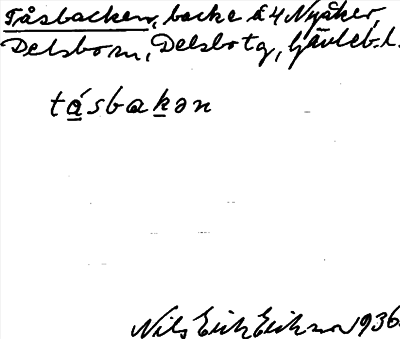 Tåsbacken, backe å 4 Nyåker,
Delsbo sn, Delsbo tg, Gävleb. l.
tåsbakən
Nils Erik Erikson 1936.